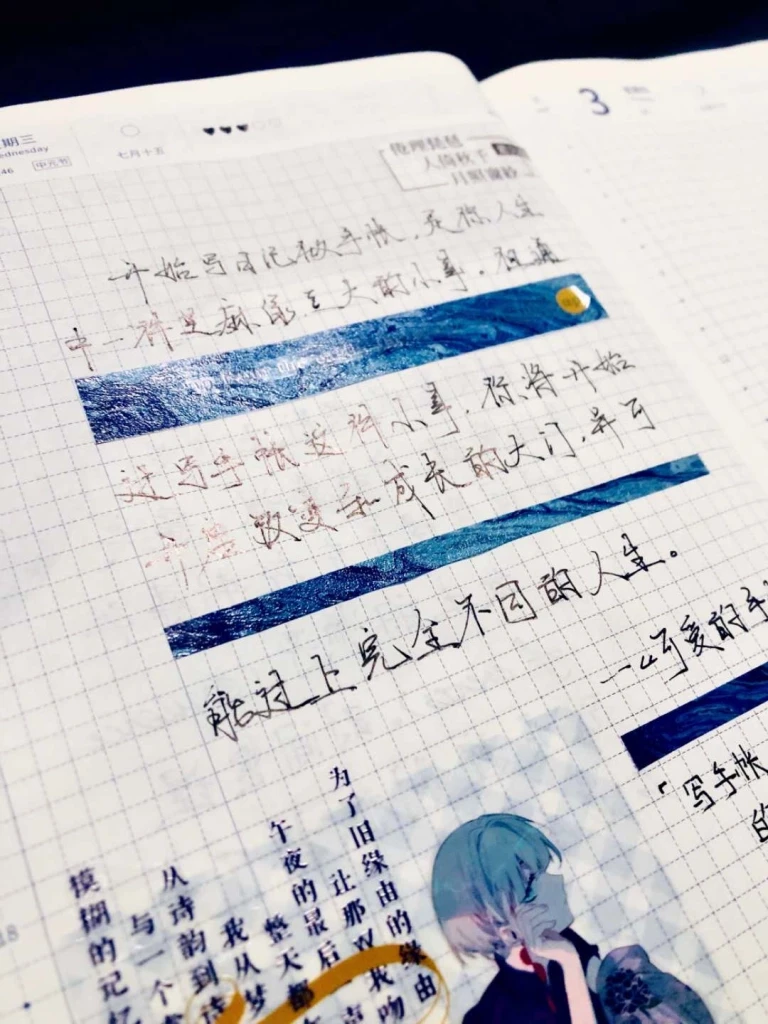 期三
ednesday
46
中元节
七月十五
3
倦理琵琶
人倚秋千
月照窗纱
开始写日记做手帐，是你人生
中一件足微大的小事。但通
过写手帐这件小事，你将开始
开启改变和成长的大门，并可
能过上完全不同的人生。
一山可爱的手
"写手帐
的
为了旧缘由的缘由
让那 我吻
午夜的最后一声
整天都
我从梦
从诗韵到诗
与一个
模糊的记忆
18